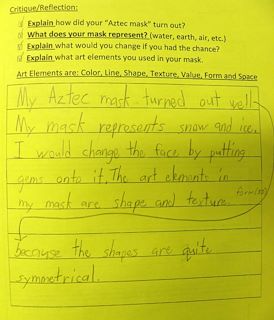 Critique/Reflection:
Explain how did your "Aztec mask" turn out?
What does your mask represent? (water, earth, air, etc.)
Explain what would you change if you had the chance?
Explain what art elements you used in your mask.
Art Elements are: Color, Line, Shape, Texture, Value, Form and Space
My Aztec mask turned out well
My mask represents snow and ice.
I would change the face by putting
gems onto it. The art elements in
my mask are shape and texture
because the shapes are quite
symmetrical.